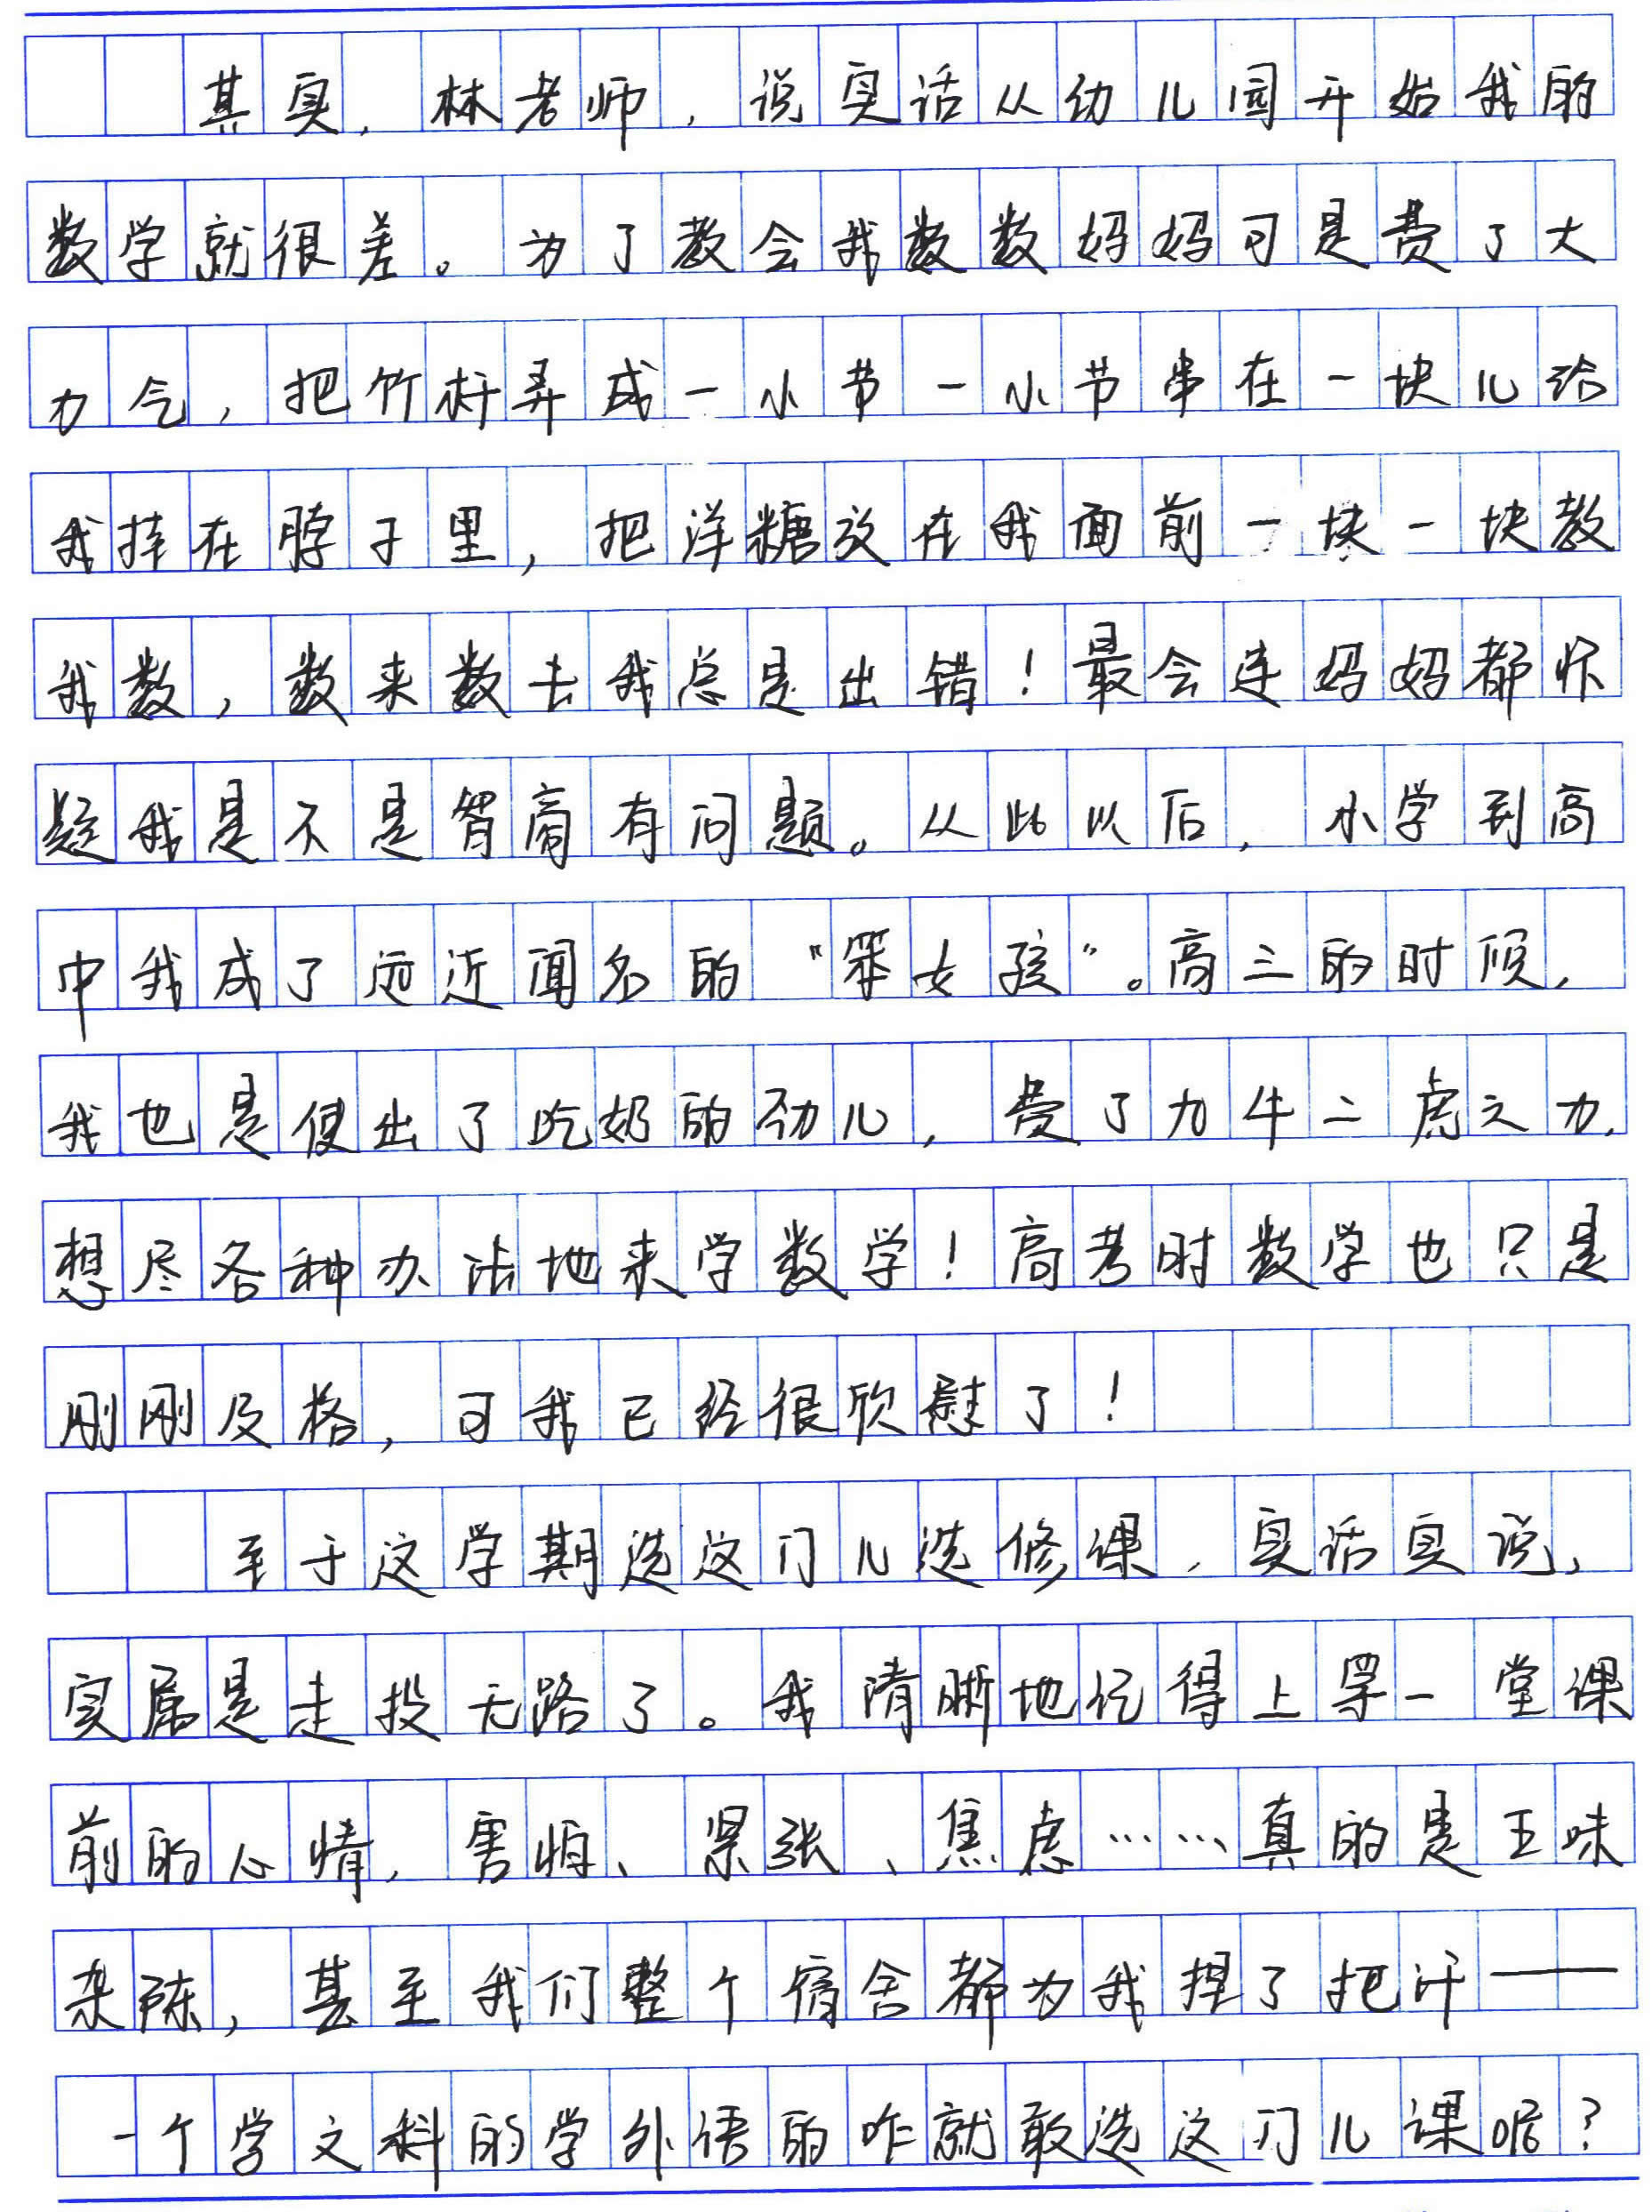 其实,林老师,说实话从幼儿园开始我的
数学就很差。为了教会我数数妈妈可是费了大
力气,把竹杆弄成一小节一小节串在一块儿给
我挂在脖子里,把洋糖放在我面前一块一块教
我数,数来数去我总是出错!最会连妈妈都怀
疑我是不是智商有问题。从此以后,小学到高
中我成了远近闻名的“笨女孩”。高三的时候,
我也是使出了吃奶的劲儿,费了九牛二虎之力,
想尽各种办法地来学数学!高考时数学也只是
刚刚及格,可我已经很欣慰了!
至于这学期选这门儿选修课,实话实说,
实属是走投无路了。我清晰地记得上第一堂课
前的心情,害怕、紧张、焦虑……真的是五味
杂陈,甚至我们整个宿舍都为我捏了把汗——
一个学文科的学外语的咋就敢选这门儿课呢?